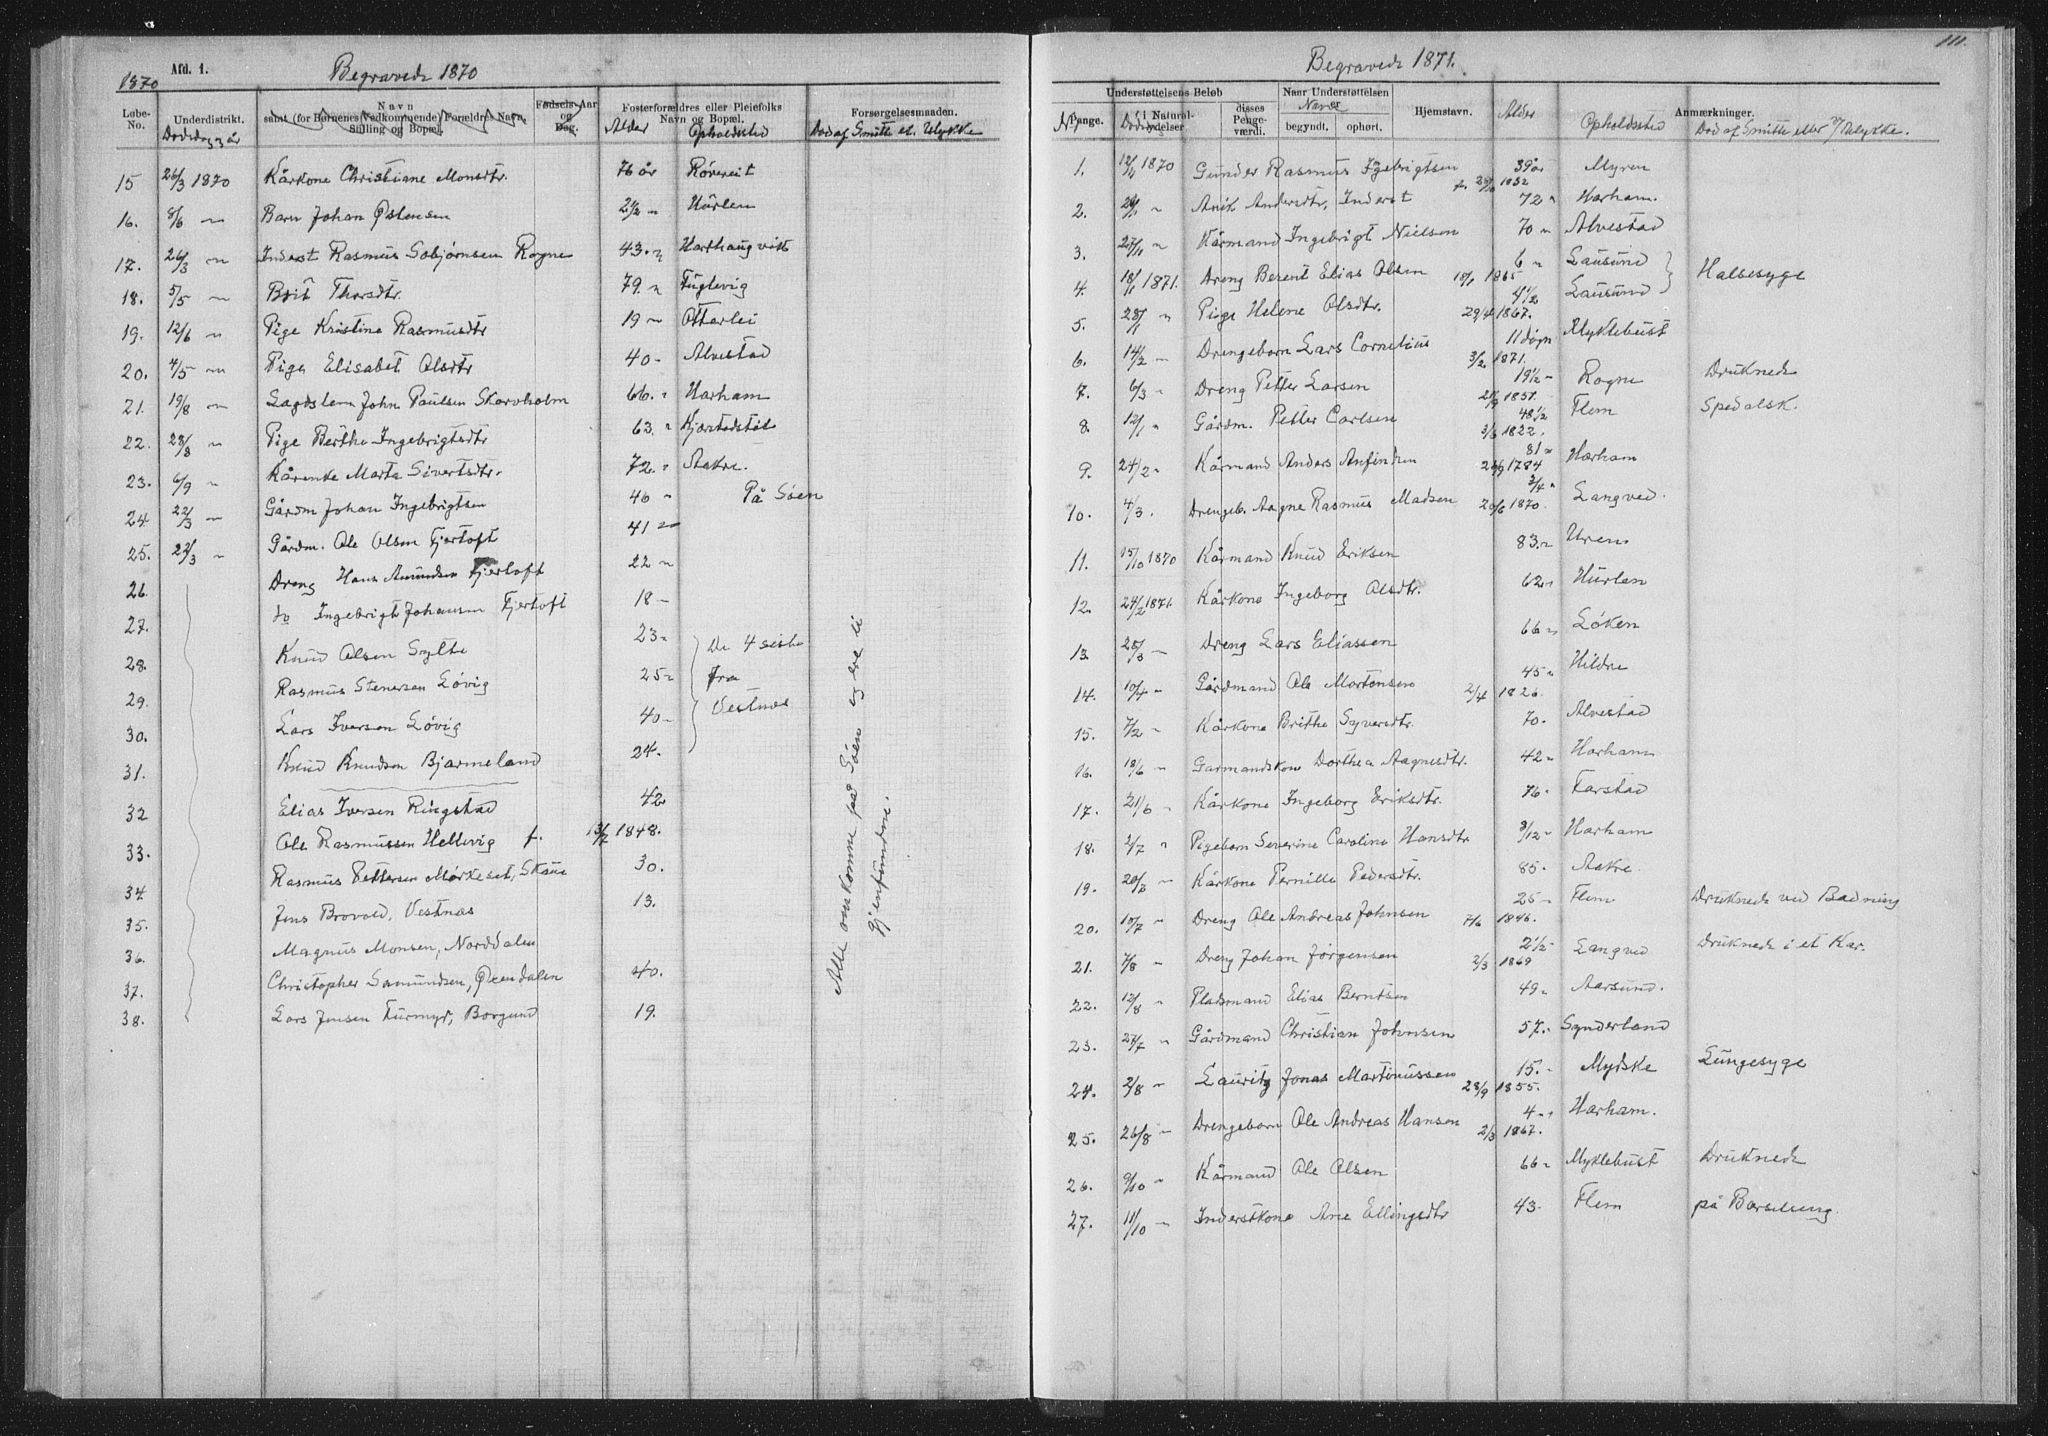 1870 Afd. 1. Begravede 1870
Løbe-No. Underdistrikt. Navn samt (for Børnenes Vedkommende) Forældres Navn, Stilling og Bopæl. Fødsels-Aar og Dag. Fosterforældres eller Pleiefolks Navn og Bopæl. Forsørgelsesmaaden.
Dødsdag og år Alder Opholdssted Død af Smitte el. Ulykke
15 26/3 1870 Kårkone Christiane Monsdtr. 76 år Røvereit
16. 8/6 " Barn Johan Østensen 2 1/2 " Hurlen
17. 26/3 " Inderst Rasmus Sobjørnsen Rogne 43. " Harhaugvik
18. 5/5 " Brit Thorsdtr. 79. " Fuglevig
19. 12/6 " Pige Kristine Rasmusdtr 19 " Otterlei
20. 4/5 " Pige Elisabet Olsdtr 40 - Alvestad
21. 19/8 " Lagdslem John Paulsen Skarvholm 66. " Harham
22. 28/8 " Pige Berthe Ingebrigtsdtr 63. " Kjørstadstøl
23. 6/9 " Kårenke Marta Sivertsdtr. 72. " Aakre.
24 22/3 " Gårdm Johan Ingebrigtsen 46 " På Søen
25. 22/3 " Gårdm. Ole Olsen Fjertoft 41 "
26. Dreng Hans Amundsen Fjertoft 22 "
27. do Ingebrigt Johansen Fjertoft 18 -
28. Knud Olsen Sylte 23 " De 4 siste
29. Rasmus Stenersen Løvig 25 " fra
30. Lars Iversen Løvig 40 - Vestnæs
31. Knud Knudsen Bjarmeland 24.
32 Elias Iversen Ringstad 42
33. Ole Rasmussen Hellevig f. 13/7 1848.
34. Rasmus Pettersen Mørkeset, Skaue 30.
35. Jens Brovold, Vestnæs 13.
36. Magnus Monsen, Norddalen
37. Christopher Samundsen, Øxendalen 40.
38. Lars Jensen Furmyr, Borgund 19.
Alle omkomne paa Søen og ere ei
gjenfundne.
111.
Begravede 1871.
Understøttelsens Beløb Naar Understøttelsen Hjemstavn. Anmærkninger.
Penge. i Naturalydelser. disses Pengeværdi. begyndt. ophørt.
Nr. Døds Navne Alder Opholdssted Død af Smitte eller v/ Ulykke.
1. 12/4 1870 Gunder Rasmus Ingebrigtsen f. 28/10 1832 39 år Myren
2. 24/1 " Anik Andersdtr, Inderst 72 " Harham.
3. 27/1 " Kårmand Ingebrigt Nielsen 70 " Alvestad
4. 18/1 1871. Dreng Berent Elias Olsen 18/1 1865 6 " Lausund } Halsesyge
5. 28/1 " Pige Helene Olsdtr. 29/4 1867. 4 1/2 Lausund
6. 14/2 - Drengebarn Lars Cornelius 3/2 1871. 11 døgn Myklebust
7. 6/3 " Dreng Petter Larsen 21/9 1851. 19 1/2 - Rogne Druknede
8. 12/1 " Gårdm. Petter Carlsen 3/3 1822. 48 1/2 Flem Spedalsk.
9. 24/2 " Kårmand Anders Anfindsen 26/9 1784 81 " Harham
10. 4/3. Drengeb. Aagne Rasmus Madsen 20/6 1870. 3/4 " Langved.
11. 15/10 1870 Kårmand Knud Eriksen 83. " Uren
12. 24/2 1871. Kårkone Ingeborg Olsdtr. 62 " Hurlen
13. 28/3 - Dreng Lars Eliassen 66 " Løken
14. 10/4 " Gårdmand Ole Mortensen 2/4 1826. 45 " Hildre
15. 7/2 " Kårkone Brithe Syversdtr. 70. Alvestad
16. 18/6 " Garmandskone Dorthea Aagnesdtr. 42 " Harham
17. 21/6 " Kårkone Ingeborg Eriksdtr. 76 - Farstad
18. 2/7 " Pigebarn Severine Caroline Hansdtr 8/12 - Harham
19. 20/3 - Kårkone Pernille Pedersdtr. 85. Aakre.
20. 10/7 " Dreng Ole Andreas Johnsen 7/6 1846. 25 - Flem Druknede ved Badning
21. 7/8 " Dreng Johan Jørgensen 2/3 1869 2 1/2 - Langved Druknede i et Kar.
22. 12/8 " Pladsmand Elias Berntsen 49 " Aarsund.
23. 27/7 " Gårdmand Christian Johnsen 57. " Synderland
24. 2/8 - Lauritz Jonas Martinussen 28/9 1855. 15. - Myrske Lungesyge
25. 26/8 - Drengebarn Ole Andreas Hansen 2/3 1867. 4 - " Harham.
26. 9/10 " Kårmand Ole Olsen 66 " Myklebust Druknede
27. 11/10 " Inderstkone Ane Ellingsdtr 43. Flem på Barseleng.